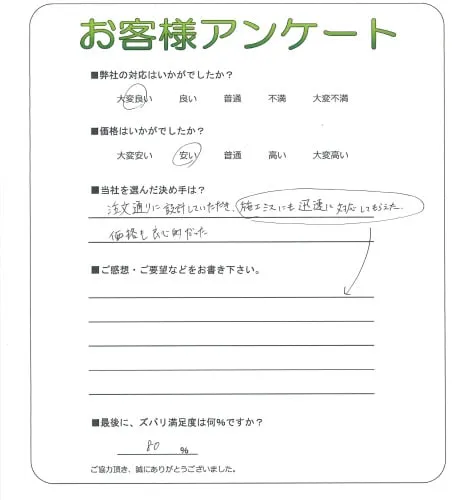 お客様アンケート
■弊社の対応はいかがでしたか？
大変良い 良い 普通 不満 大変不満
■価格はいかがでしたか？
大変安い 安い 普通 高い 大変高い
■当社を選んだ決め手は？
注文通りに設計していただき、施工ミスにも迅速に対応してもらえた
価格も良心的だった
■ご感想・ご要望などをお書き下さい。
■最後に、ズバリ満足度は何%ですか？
80 %
ご協力頂き、誠にありがとうございました。